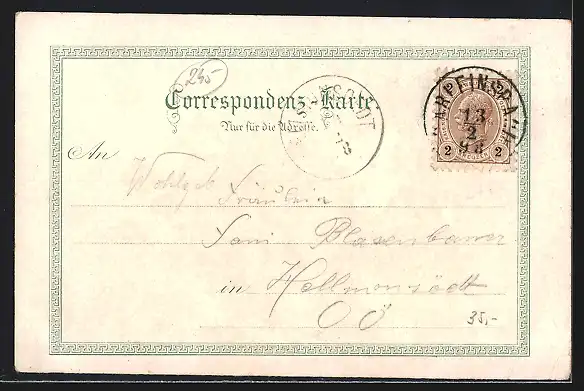 245
Correspondenz-Karte.
Nur für die Adresse.
13
2
98
2 KREUZER 2
An
Wohlgeb Fräulein
Fani Blasenbauer
in Hellmonsödt
OÖ
35,-